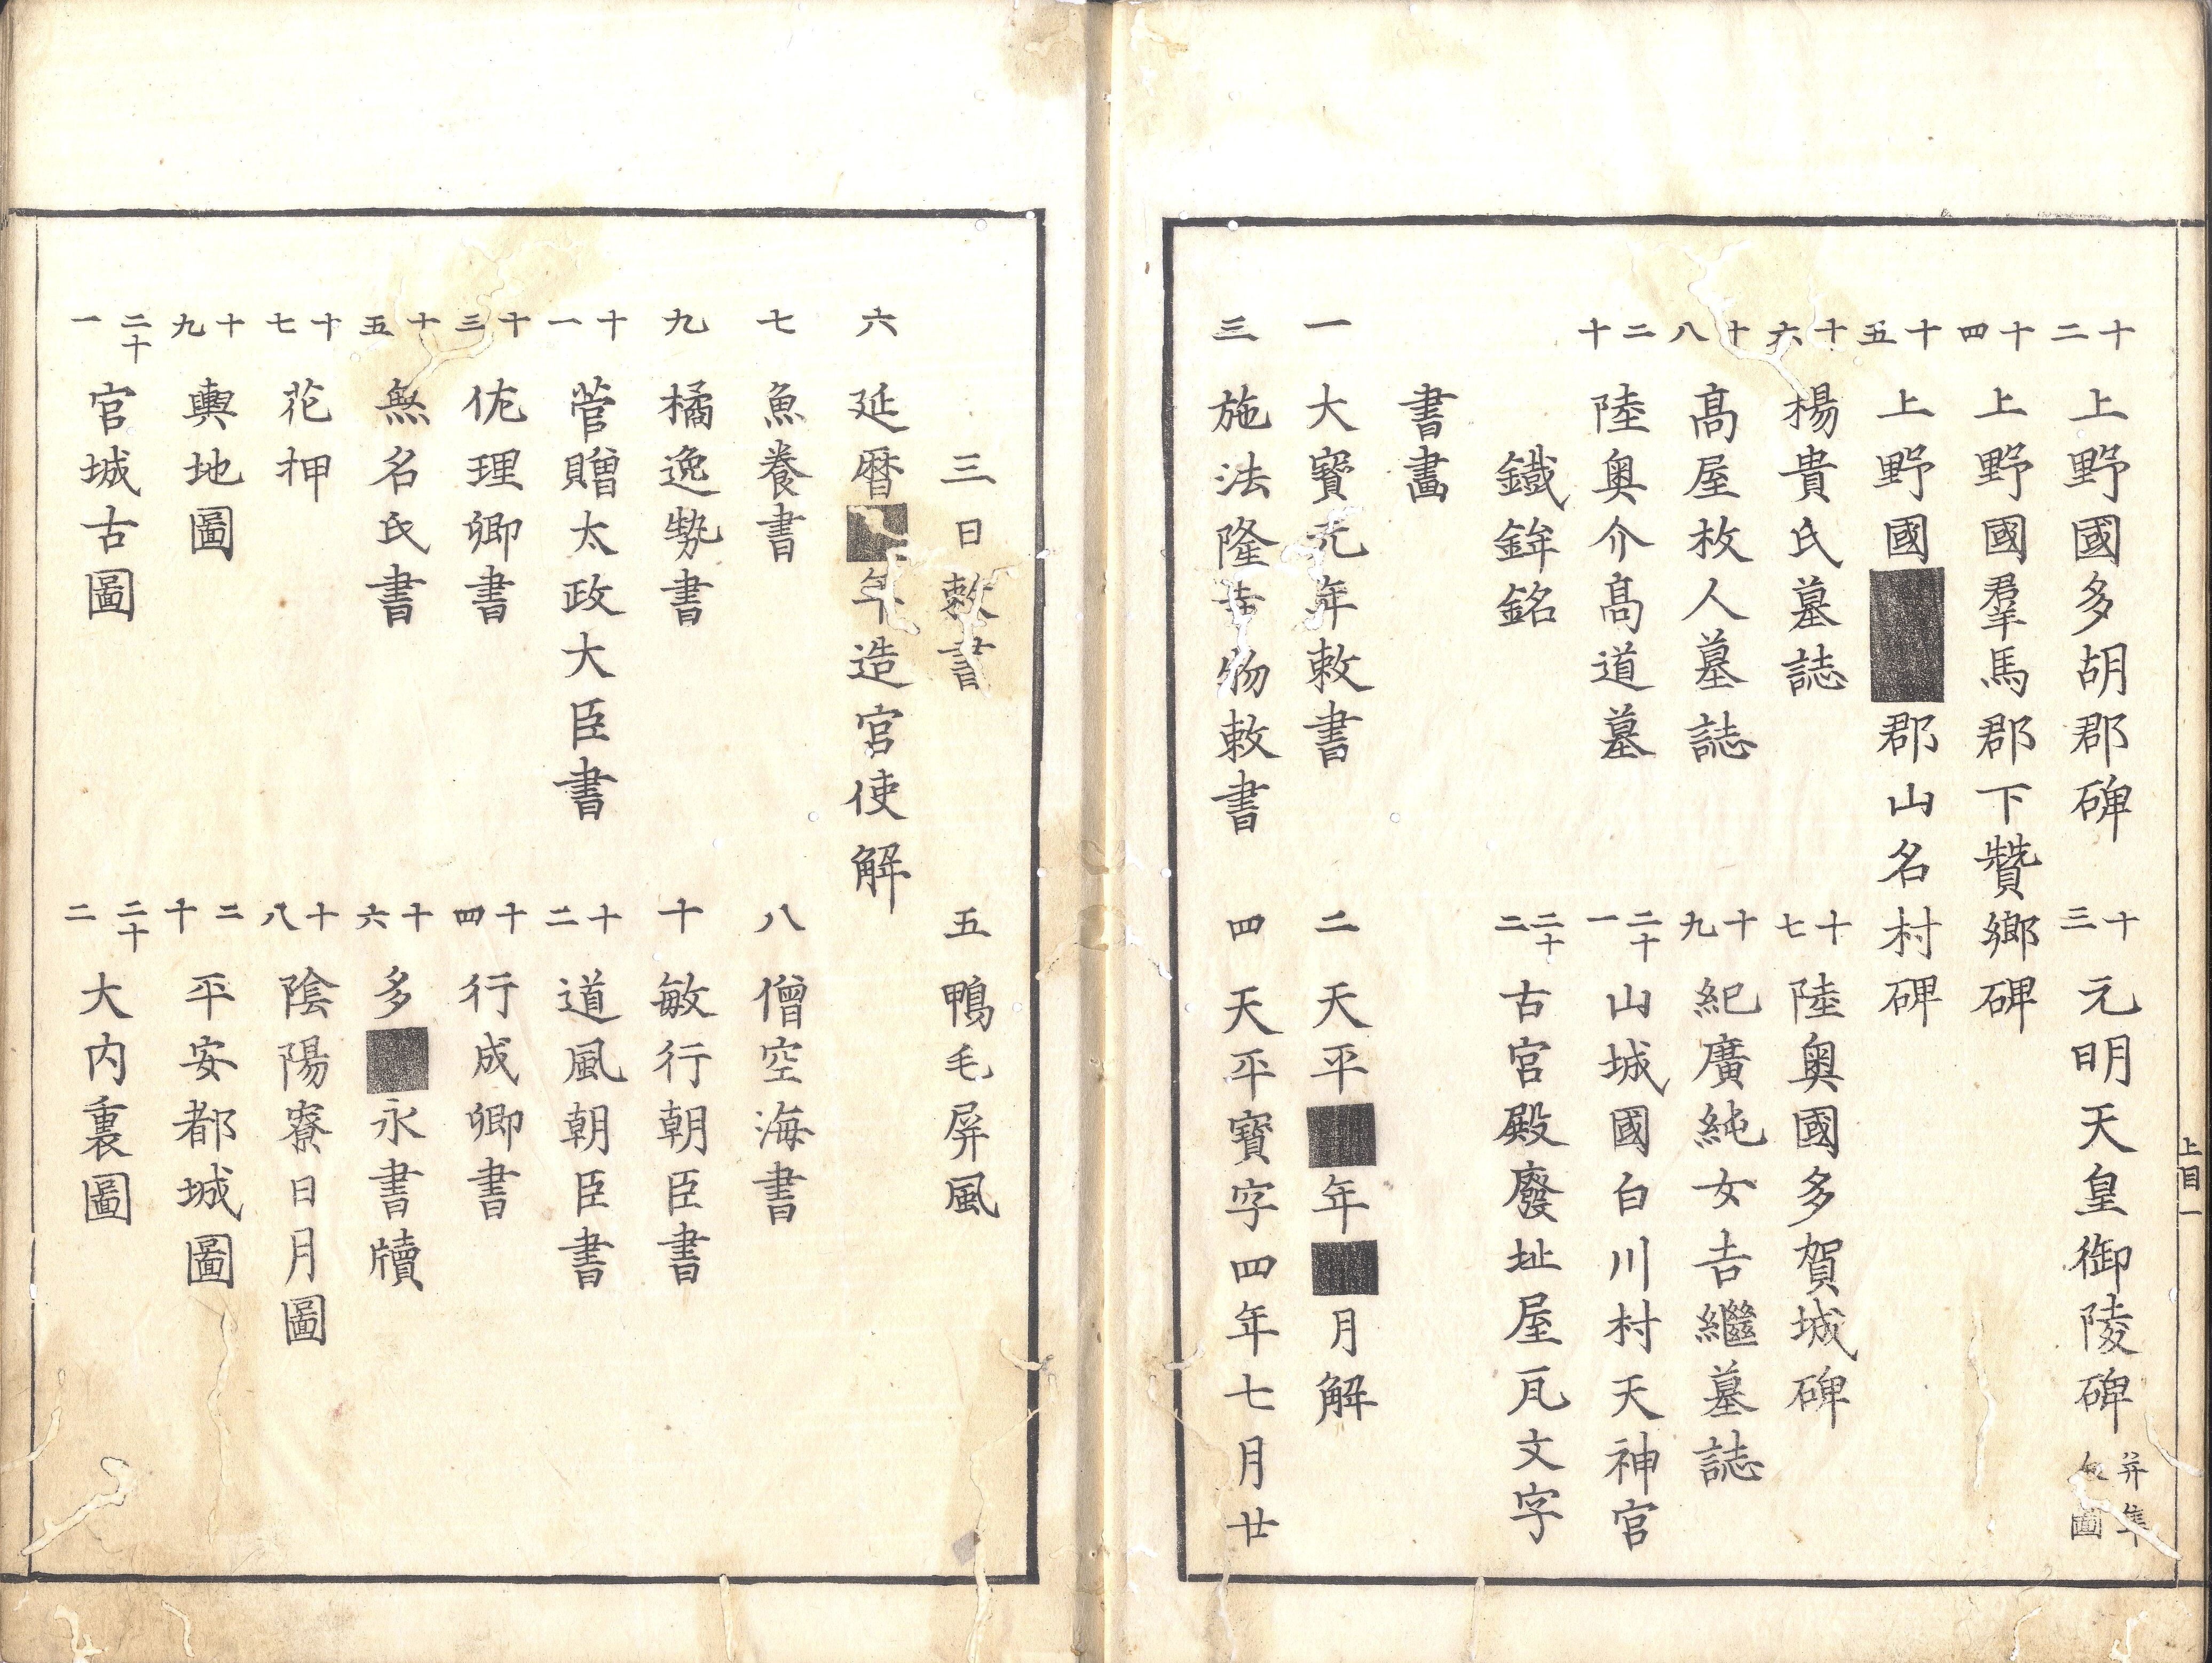 十二 上野國多胡郡碑 十三 元明天皇御陵碑 并隼 圖
十四 上野國羣馬郡下贊鄉碑
十五 上野國■■郡山名村碑
十六 楊貴氏墓誌 十七 陸奧國多賀城碑
十八 髙屋枚人墓誌 十九 紀廣純女吉繼墓誌
二十 陸奧介髙道墓 二十一 山城國白川村天神宮
鐵鉾銘 二十二 古宮殿廢址屋瓦文字
書畵
一 大寶元年敕書 二 天平■年■月解
三 施法隆寺物敕書 四 天平寶字四年七月廿
上目一
三日敕書 五 鴨毛屏風
六 延曆■年造宮使解
七 魚養書 八 僧空海書
九 橘逸勢書 十 敏行朝臣書
十一 菅贈太政大臣書 十二 道風朝臣書
十三 佐理卿書 十四 行成卿書
十五 無名氏書 十六 多■永書牘
十七 花押 十八 陰陽寮日月圖
十九 輿地圖 二十 平安都城圖
二十一 宮城古圖 二十二 大内裏圖